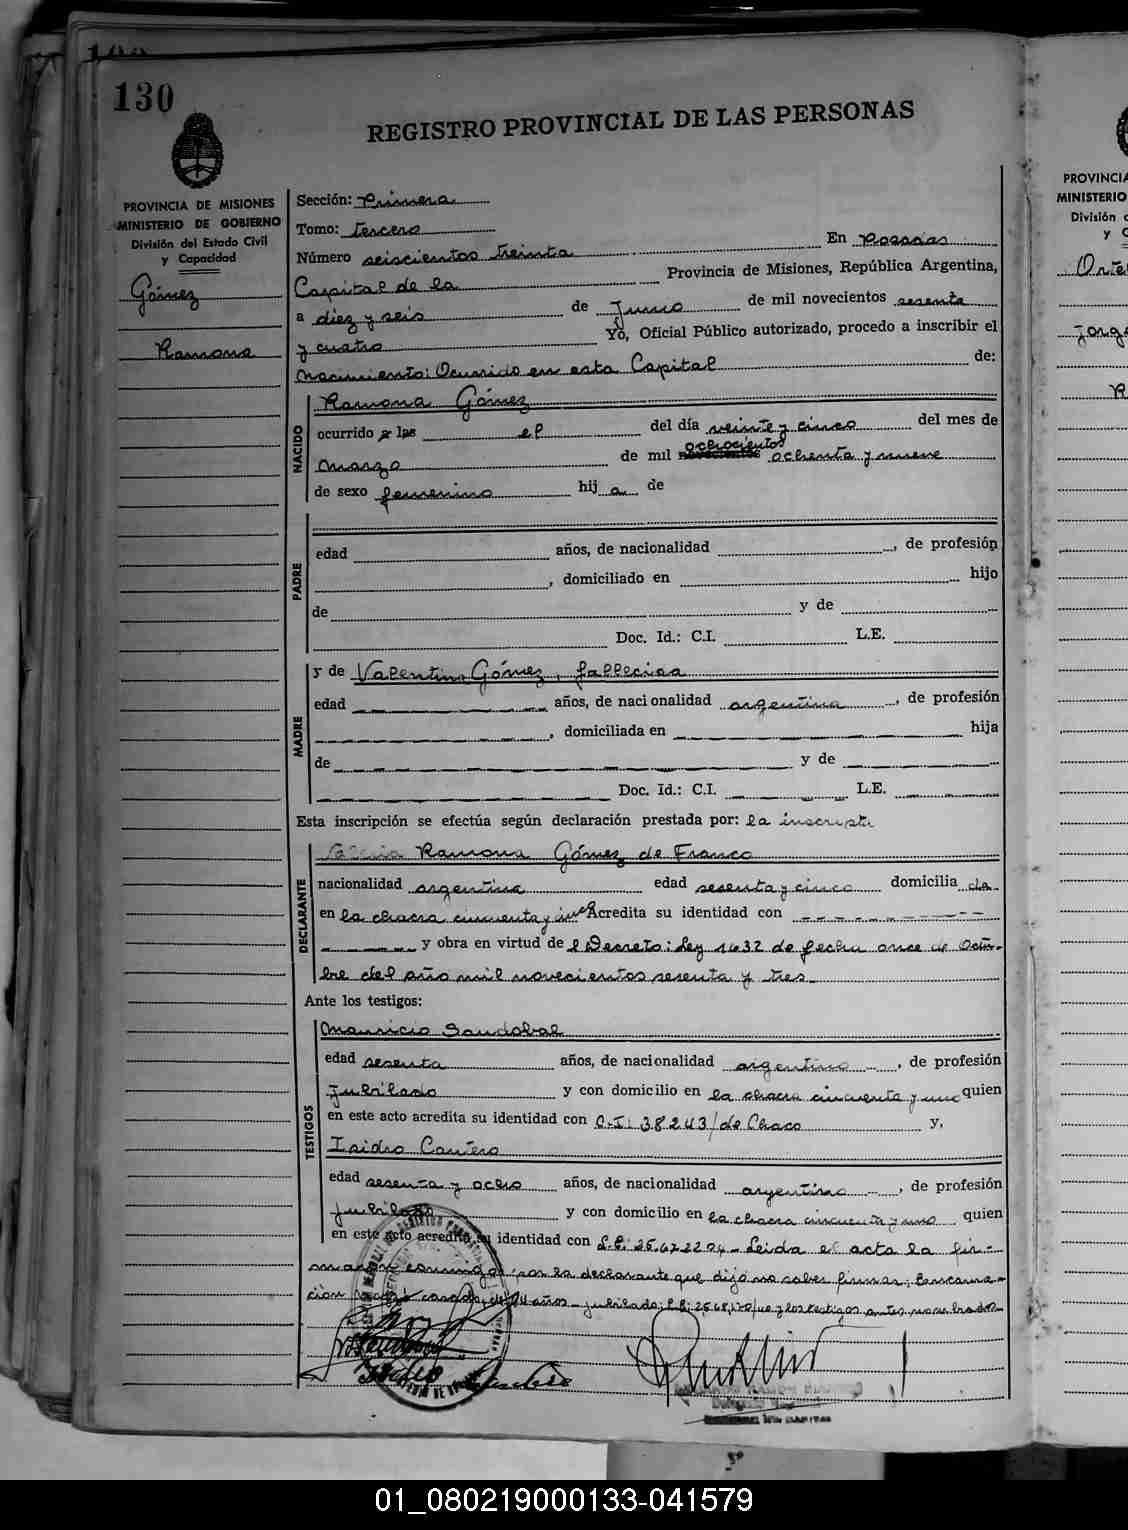 130
REGISTRO PROVINCIAL DE LAS PERSONAS
PROVINCIA DE MISIONES
MINISTERIO DE GOBIERNO
División del Estado Civil
y Capacidad
Gómez
Ramona
Sección: Primera
Tomo: tercero
Número seiscientos treinta En Posadas
Capital de la Provincia de Misiones, República Argentina,
a diez y seis de Junio de mil novecientos sesenta
y cuatro Yo, Oficial Público autorizado, procedo a inscribir el
nacimiento: Ocurrido en esta Capital de:
NACIDO
Ramona Gómez
ocurrido a las el del día veinte y cinco del mes de
marzo de mil novecientos ochocientos ochenta y nueve
de sexo femenino hij a de
PADRE
edad años, de nacionalidad , de profesión
, domiciliado en hijo
de y de
Doc. Id.: C.I. L.E.
MADRE
y de Valentina Gómez, fallecida
edad años, de nacionalidad argentina, de profesión
, domiciliada en hija
de y de
Doc. Id.: C.I. L.E.
Esta inscripción se efectúa según declaración prestada por: la inscripta
DECLARANTE
Ramona Gómez de Franco
nacionalidad argentina edad sesenta y cinco domicilia da
en la chacra cincuenta y uno Acredita su identidad con
y obra en virtud de l Decreto: Ley 1632 de fecha once de Octu-
bre del año mil novecientos sesenta y tres.
Ante los testigos:
TESTIGOS
Mauricio Sandobal
edad sesenta años, de nacionalidad argentino, de profesión
Jubilado y con domicilio en la chacra cincuenta y uno quien
en este acto acredita su identidad con C.I: 38243/de Chaco y,
Isidro Cantero
edad sesenta y ocho años, de nacionalidad argentino, de profesión
Jubilado y con domicilio en la chacra cincuenta y uno quien
en este acto acredita su identidad con L.E: Leida el acta la fir-
maron conmigo: por la declarante que dijo no saber firmar, Encarna-
ción casado, de años - jubilado; y los testigos antes nombrados
PROVINCIA
MINISTERIO
División d
y C
01_080219000133-041579